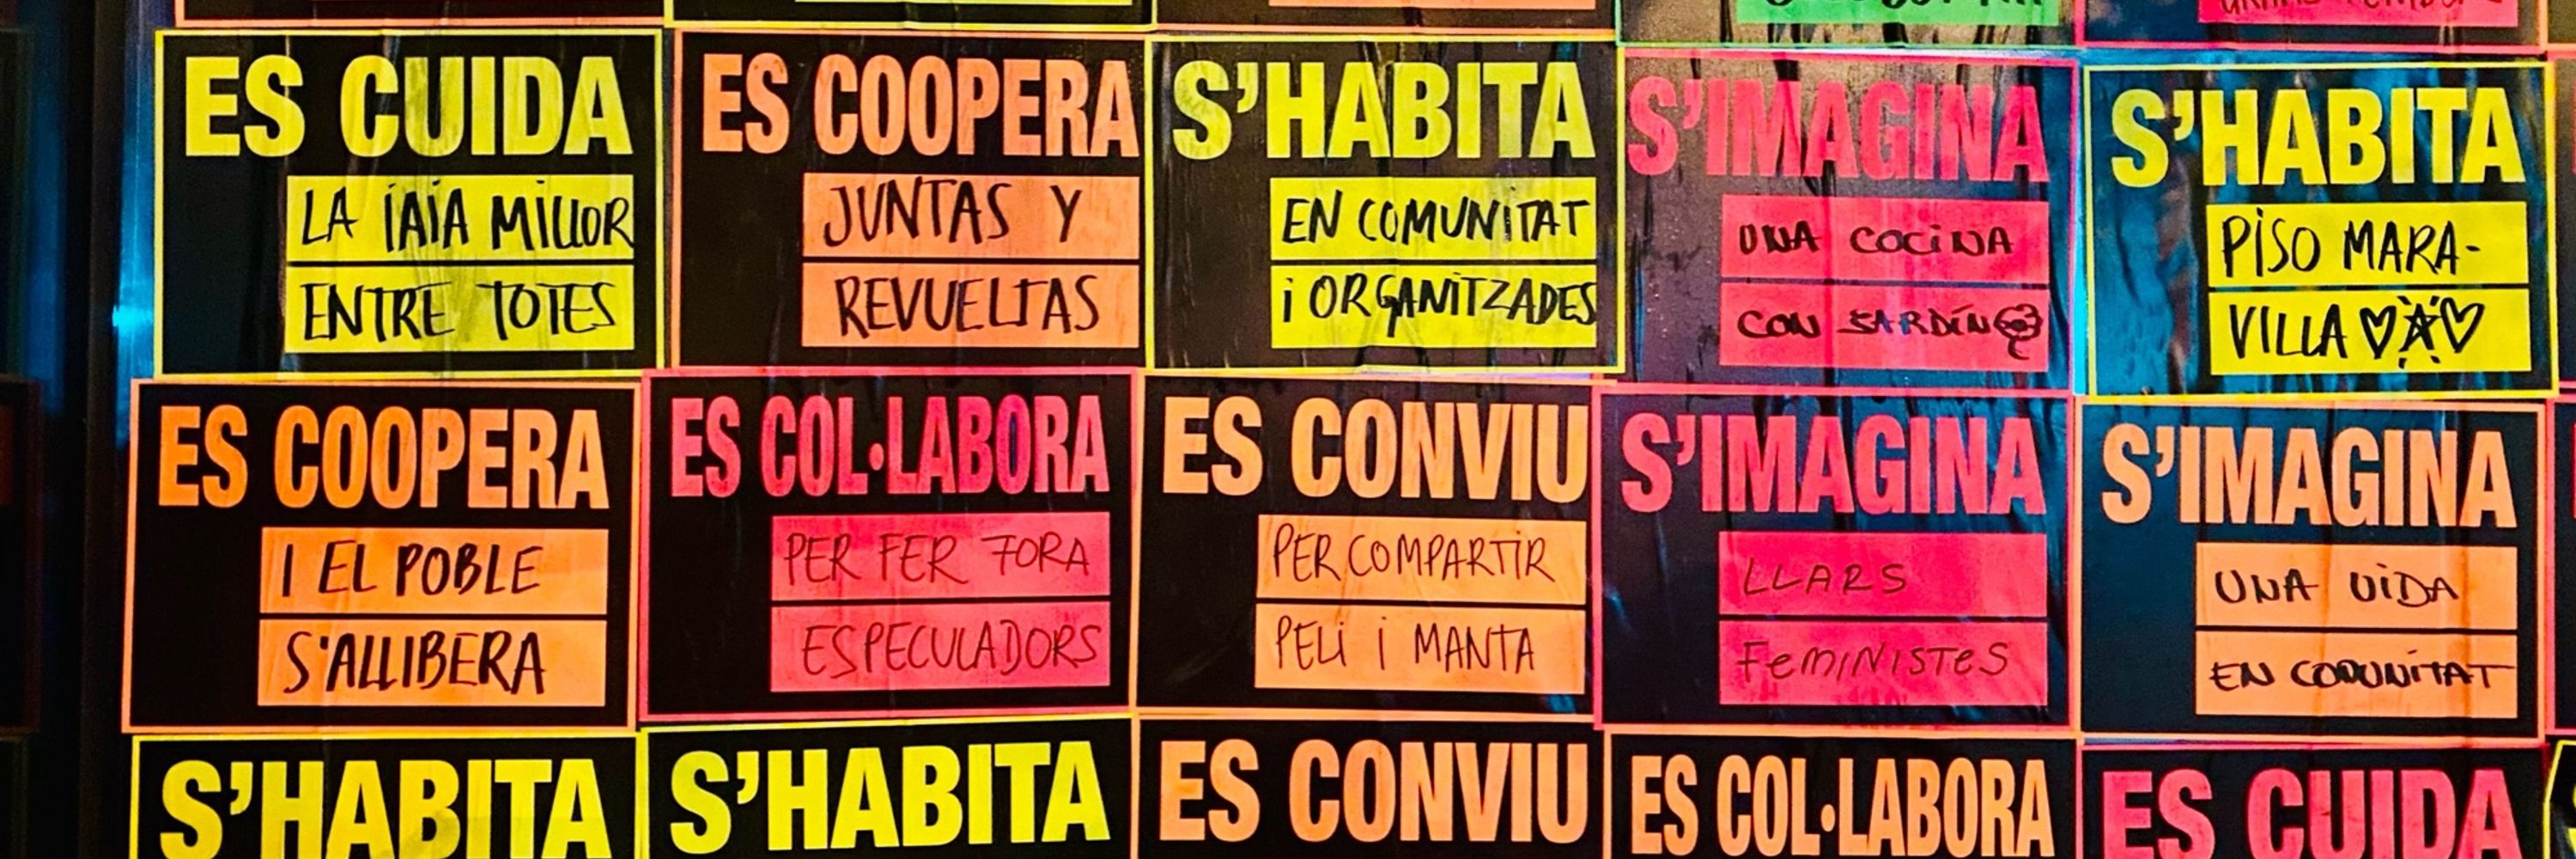 ES CUIDA
LA IAIA MILLOR
ENTRE TOTES
ES COOPERA
JUNTAS Y
REVUELTAS
S'HABITA
EN COMUNITAT
i ORGANITZADES
S'IMAGINA
UNA COCINA
CON JARDÍN
S'HABITA
PISO MARA-
VILLA
ES COOPERA
I EL POBLE
S'ALLIBERA
ES COL·LABORA
PER FER FORA
ESPECULADORS
ES CONVIU
PER COMPARTIR
PELI i MANTA
S'IMAGINA
LLARS
FEMINISTES
S'IMAGINA
UNA VIDA
EN COMUNITAT
S'HABITA
S'HABITA
ES CONVIU
ES COL·LABORA
ES CUIDA